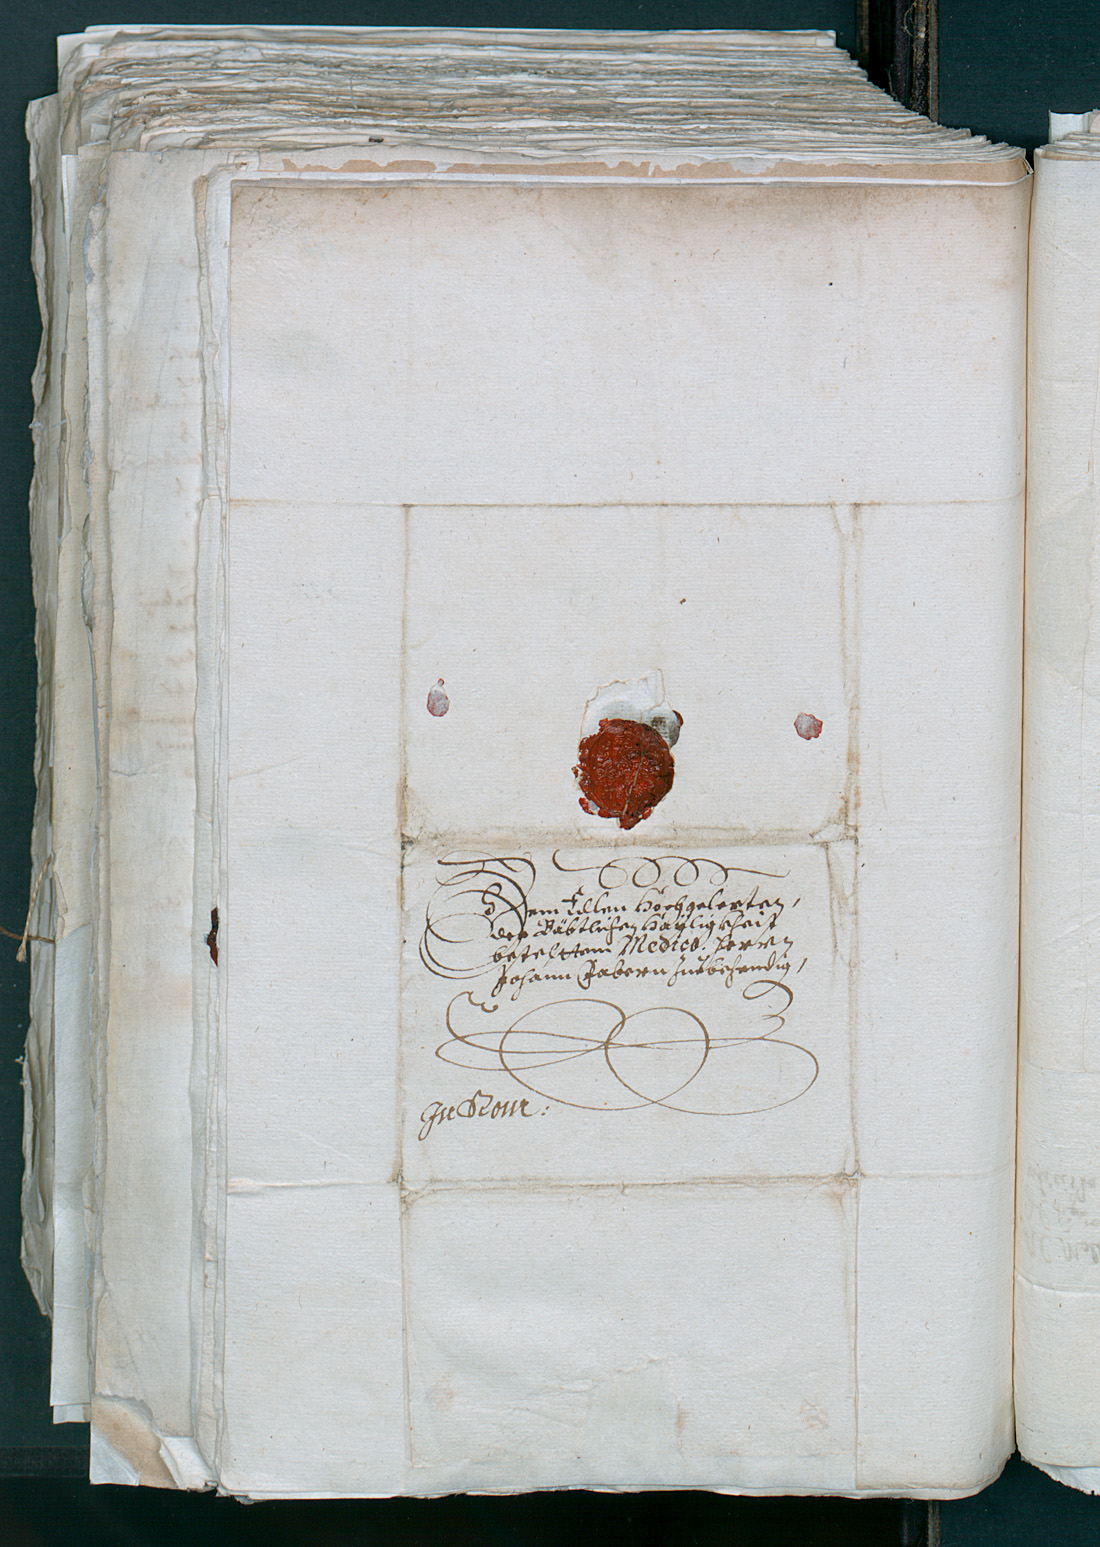 Dem Edlen Hochgelerten,
der Bäbtlichen Hayligkheit
bestelttem Medico. Herrn
Johann Fabern zue behendig,
In Rom: